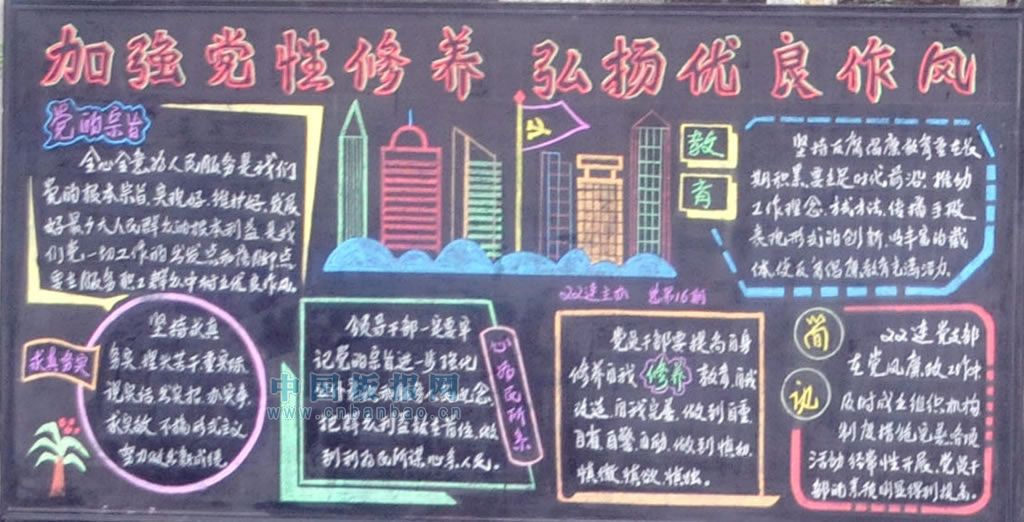 加强党性修养 弘扬优良作风
党的宗旨
全心全意为人民服务是我们
党的根本宗旨,实现好、维护好、发展
好最广大人民群众的根本利益是我
们党一切工作的出发点和落脚点
要在服务职工群众中树立优良作风。
教育
坚持反腐倡廉教育重在长
期积累,要立足时代前沿,推动
工作理念、方式方法、传播手段、
表现形式的创新,以丰富的载
体使反腐倡廉教育充满活力。
22连主办 总第16期
求真务实
坚持求真
务实,艰苦苦干,重实际
说实话,出实招,办实事,
求实效,不搞形式主义
努力创出新成绩。
心为民所系
领导干部一定要牢
记党的宗旨进一步强化
把群众利益放在首位,做
到利为民所谋心系人民。
中国板报网
www.cnbanbao.cn
党员干部要提高自身
修养自我 修养 教育,自我
改造,自我完善,做到自重
自省、自警、自励,做到慎初、
慎微、慎欲、慎独。
简讯
22连党支部
在党风廉政工作中
及时成立组织机构
制度措施完善,各项
活动经常性开展,党员干
部的素质明显得到提高。